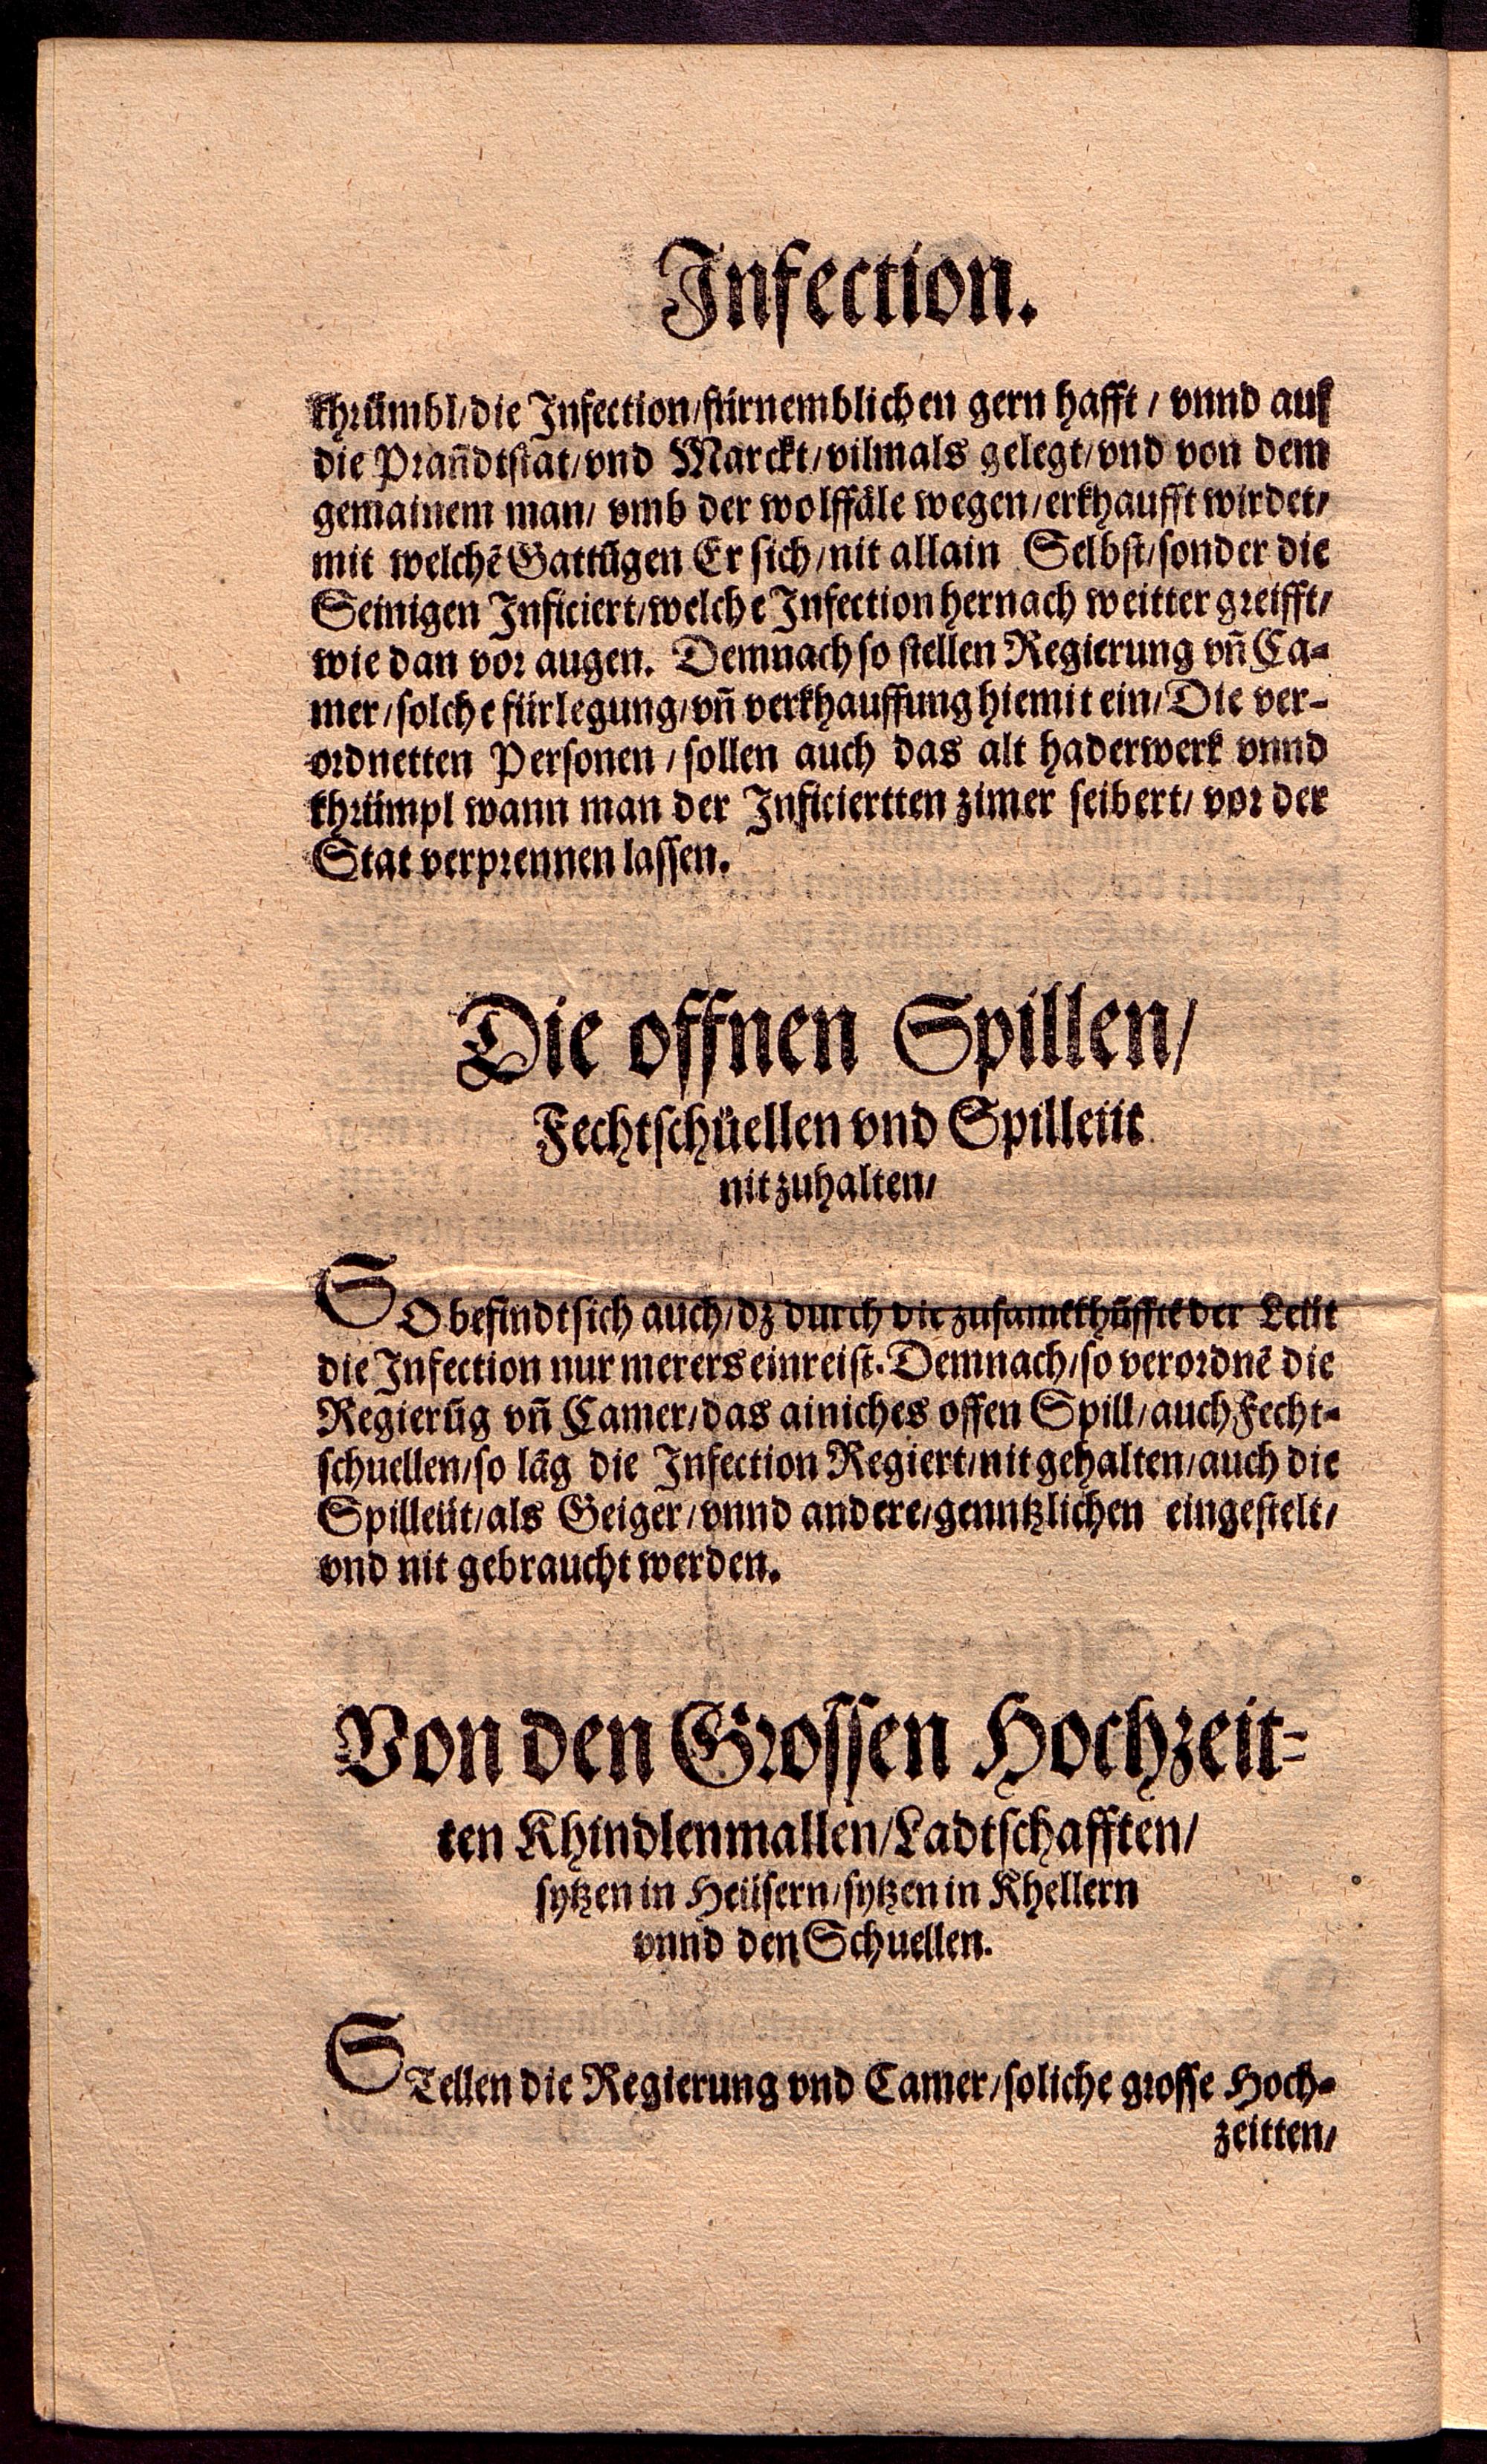 Infection.
khrümbl/die Infection/fürnemblichen gern hafft / vnnd auf
die Prañdtstat/vnd Marckt/vilmals gelegt/vnd von dem
gemainem man/ vmb der wolffäle wegen/erkhaufft wirdet/
mit welchē Gattūgen Er sich/nit allain Selbst/sonder die
Seinigen Inficiert/welche Infection hernach weitter greifft/
wie dan vor augen. Demnach so stellen Regierung vñ Ca-
mer/solche fürlegung/vñ verkhauffung hiemit ein/Die ver-
ordnetten Personen / sollen auch das alt haderwerk vnnd
khrümpl wann man der Inficiertten zimer seibert/ vor der
Stat verprennen lassen.
Die offnen Spillen/
Fechtschüellen vnd Spilleüt
nit zuhalten/
SO befindt sich auch/dz durch die zusamēkhüfftē der Leüt
die Infection nur merers einreist. Demnach/so verordnē die
Regierūg vñ Camer/das ainiches offen Spill/auch Fecht-
schuellen/so lāg die Infection Regiert/nit gehalten/auch die
Spilleüt/als Geiger/vnnd andere/genntzlichen eingestelt/
vnd nit gebraucht werden.
Von den Grossen Hochzeit-
ten Khindlenmallen/Ladtschafften/
sytzen in Heüsern/sytzen in Khellern
vnnd den Schuellen.
STellen die Regierung vnd Camer/soliche grosse Hoch-
zeitten/